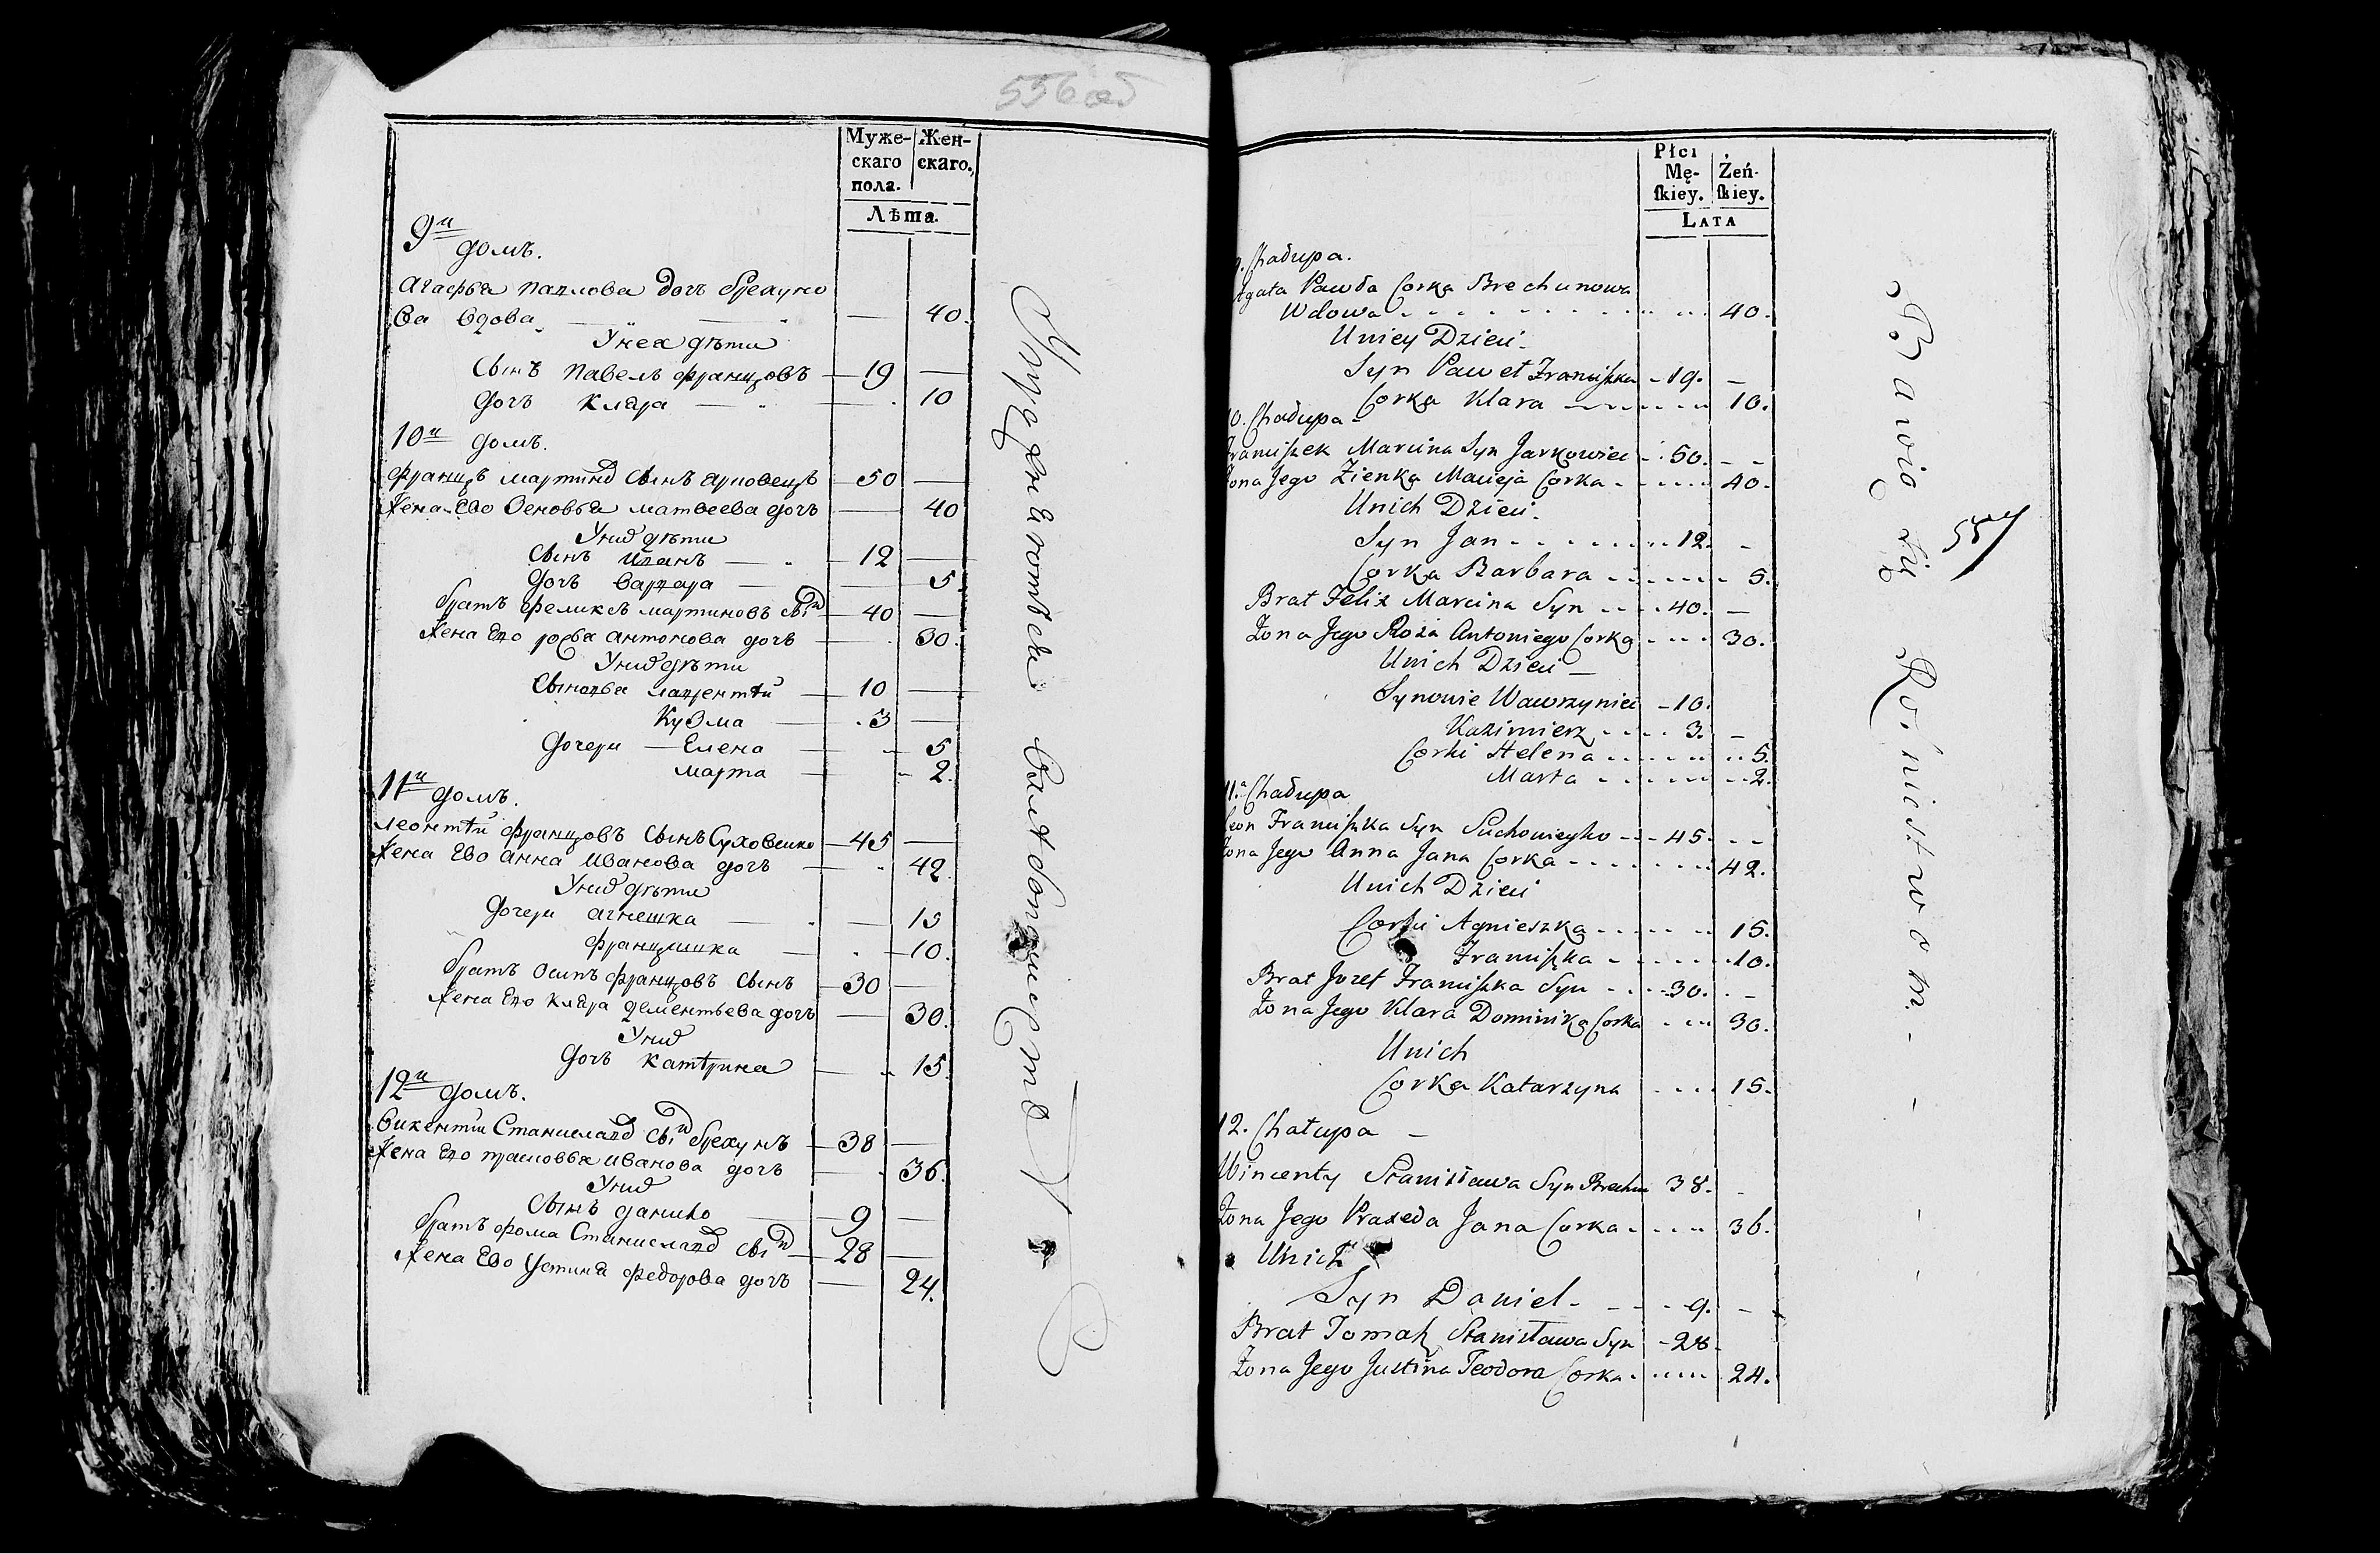 556 об
Муже-
скаго
пола.
Жен-
скаго.
Лѣта.
9й
домъ.
Агафья Павлова дочь Брехуно
ва вдова — — — 40.
У нея дѣти
Сынъ Павелъ Францовъ — 19 —
дочь Клара — — 10
10й домъ.
Францъ Мартинов Сынъ — 50 —
Жена Ево Матвеева дочь — 40
У них дѣти
Сынъ Иванъ — 12 —
дочь Варвара — — 5.
братъ Феликсъ Мартиновъ Сын — 40 —
Жена Ево Антонова дочь — 30.
У них дѣти
Сыновья Лаврентѣй — 10 —
Кузма — 3 —
дочери — Елена — 5
Марта — 2.
11й домъ.
Леонтѣй Францовъ Сынъ Суховейко — 45 —
Жена Ево Анна Иванова дочь — 42.
У них дѣти
дочери Агнешка — — 15
Францишка — 10.
братъ Осипъ Францовъ Сынъ — 30 —
Жена Ево Клара Дементьева дочь — 30.
У них
дочь Катѣрина — 15.
12й домъ.
Викентѣй Станислав Сын Брехунъ — 38 —
Жена Ево Иванова дочь — 36.
У них
Сынъ Данило — 9 —
братъ Фома Станислав Сын — 28 —
Жена Ево Устина Федорова дочь — 24.
Płci
Mę-
ſkiey.
Żeń-
ſkiey.
LATA
9. Chałupa.
Agata Pawła Corka Brechunowa
Wdowa 40.
Uniey Dzieci
Syn Paweł Franciszka 19. —
Corka Klara 10.
10. Chałupa
Franciszek Marcina Syn Jarkowiec 50. —
Zona Jego Zienka Macieja Corka 40.
Unich Dzieci
Syn Jan 12. —
Corka Barbara 5.
Brat Felix Marcina Syn 40. —
Zona Jego Roża Antoniego Corka 30.
Unich Dzieci
Synowie Wawrzyniec 10.
Kazimierz 3. —
Corki Helena 5.
Marta 2.
11. Chałupa
Leon Franciszka Syn Suchowieyko 45. —
Zona Jego Anna Jana Corka 42.
Unich Dzieci
Corki Agnieszka 15.
Franciszka 10.
Brat Jozef Franciszka Syn 30. —
Zona Jego Klara Dominika Corka 30.
Unich
Corka Katarzyna 15.
12. Chałupa
Wincenty Stanisława Syn Brechun 38. —
Zona Jego Praxeda Jana Corka 36.
Unich
Syn Daniel 9. —
Brat Tomasz Stanisława Syn 28.
Zona Jego Justina Teodora Corka 24.
Bawio się Rolnictwom.
557